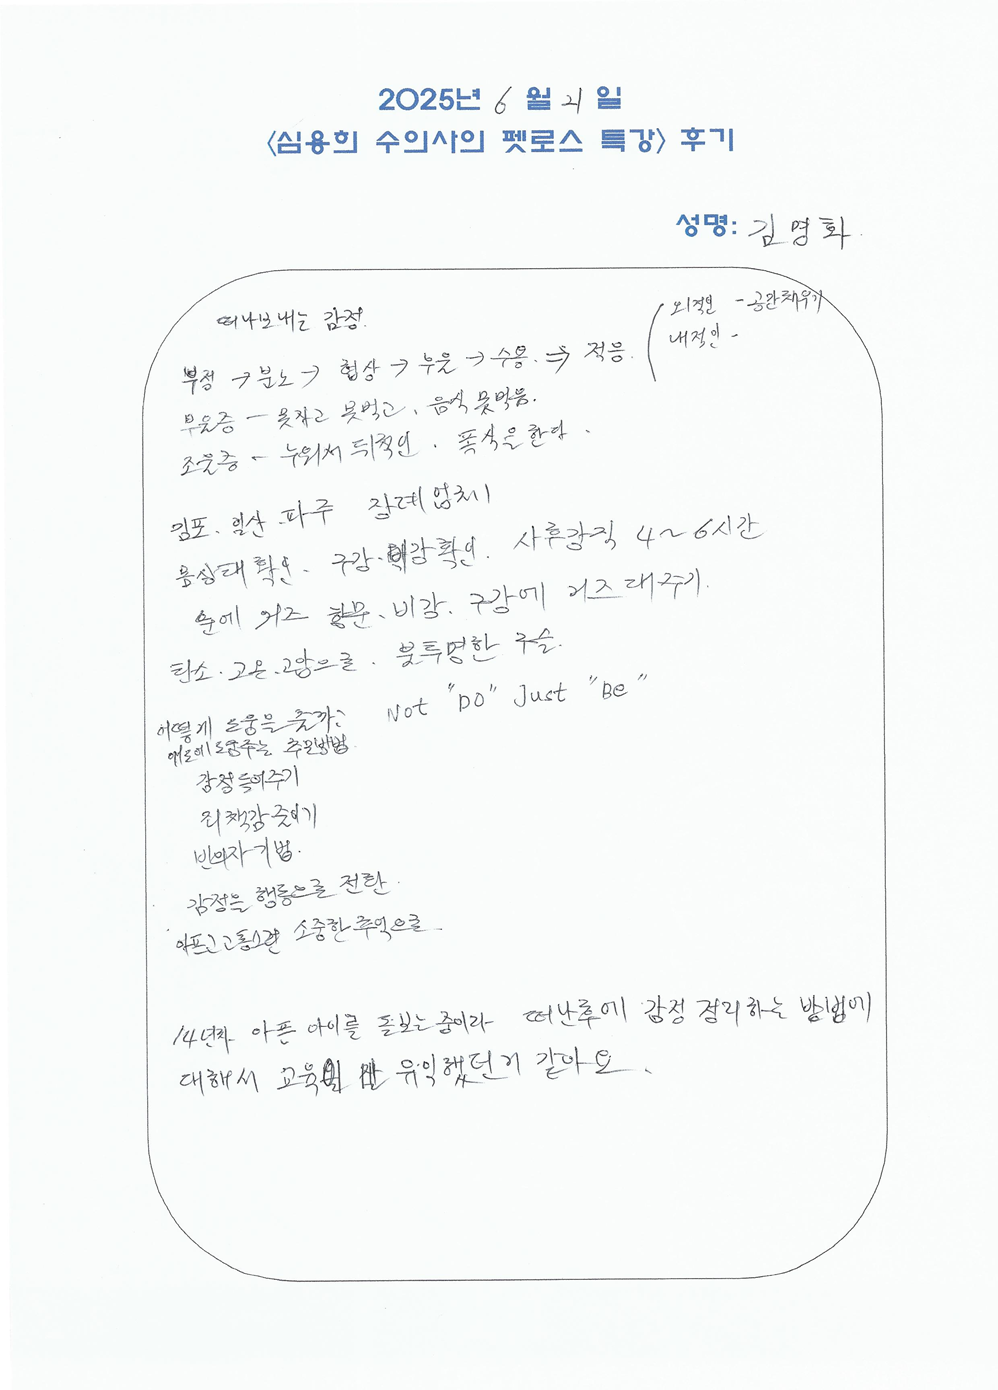 2025년 6월 21일
<심용희 수의사의 펫로스 특강> 후기
성명: 김영화
떠나보내는 감정.
외적인 - 공간채우기
내적인 -
부정 → 분노 → 협상 → 우울 → 수용. ⇒ 적응.
우울증 - 못자고 못먹고, 음식 못먹음.
조울증 - 누워서 뒤척인. 폭식을 한다.
김포. 일산. 파주 장례업체
몸상태 확인. 구강. 비강확인. 사후강직 4~6시간
눈에 거즈 항문. 비강. 구강에 거즈 대주기.
탄소. 고온. 고압으로. 불투명한 구슬.
어떻게 도움을 줄까? Not "DO" Just "Be"
애도에 도움주는 추모방법
감정들어주기
죄책감 줄이기
빈의자 기법.
감정을 행동으로 전환.
아프고 고통스런 소중한 추억으로.
14년차 아픈 아이를 돌보는 중이라 떠난후에 감정 정리하는 방법에
대해서 교육 유익했던거 같아요.